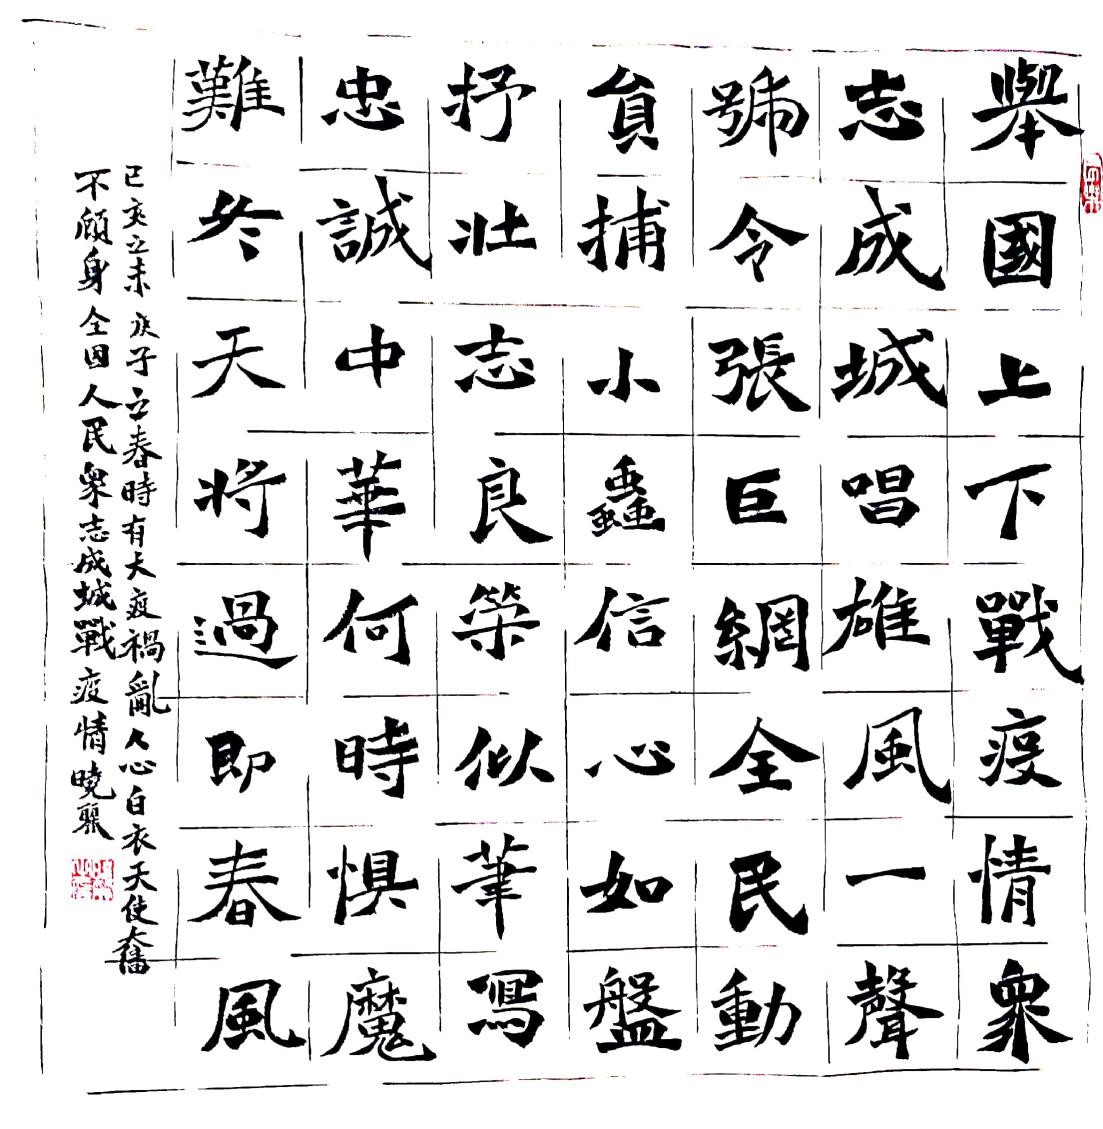 舉國上下戰疫情衆
志成城唱雄風一聲
號令張巨網全民動
員捕小蟲信心如盤
抒壯志良榮似筆寫
忠誠中華何時懼魔
難冬天將過即春風
己亥立未庚子立春時有大疫禍亂人心白衣天使奮
不顧身全因人民衆志成城戰疫情曉